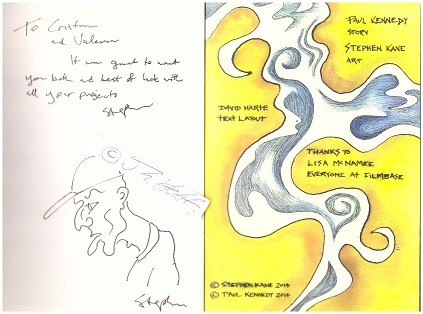 To Cristian
and Valerie
It was great to meet
you both and best of luck with
all your projects
Stephen
©
Stephen
PAUL KENNEDY
STORY
STEPHEN KANE
ART
DAVID HARTE
TEXT LAYOUT
THANKS TO
LISA MCNAMEE
EVERYONE AT FILMBASE
© STEPHEN KANE 2014
© PAUL KENNEDY 2014